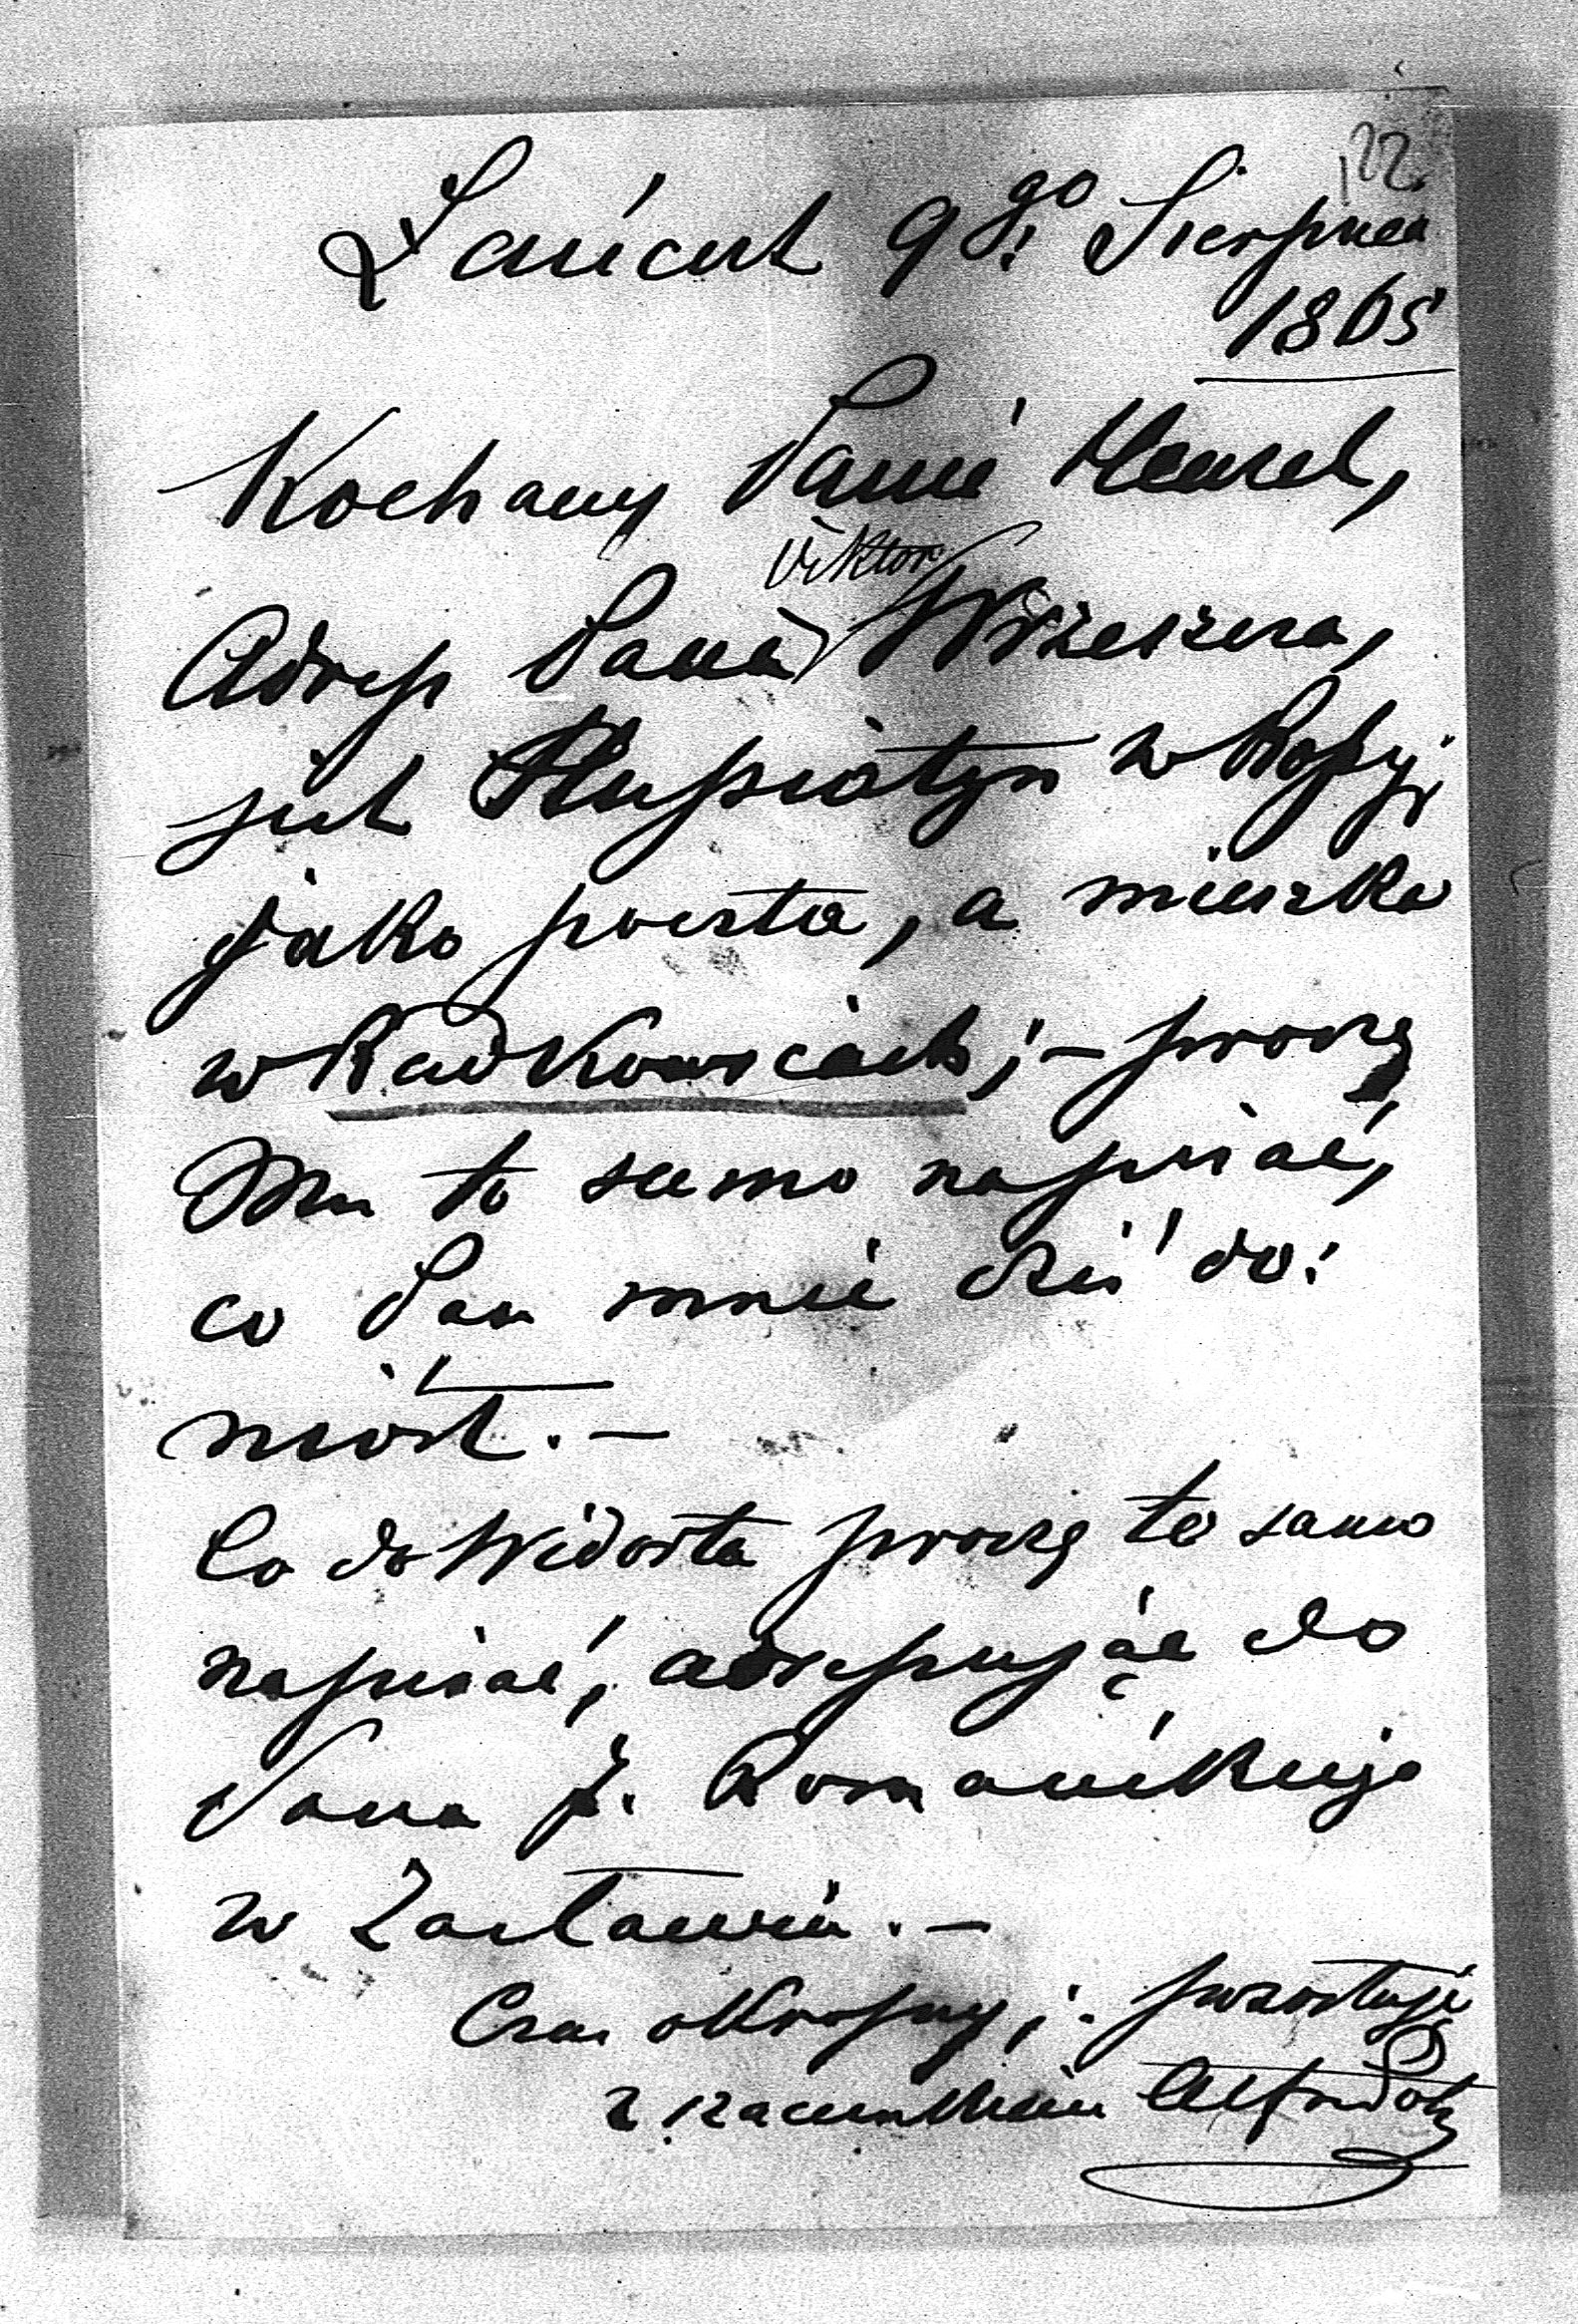 122
Łańcut 9go Sierpnia
1865
Kochany Panie Hensel,
Viktor
Adress Pana Wrzeszcza,
jest Hussiatyn w Rossyi
jako poczta, a mieszka
w Radkowicach; – proszę
Mu to samo napisać,
co Pan mnie dziś do:
niósł. –
Co do Widorta proszę to samo
napisać, adressując do
Pana J. Romańskiego
w Zasławiu. –
Czas okropny; pozostaję
z szacunkiem Alfred Pot